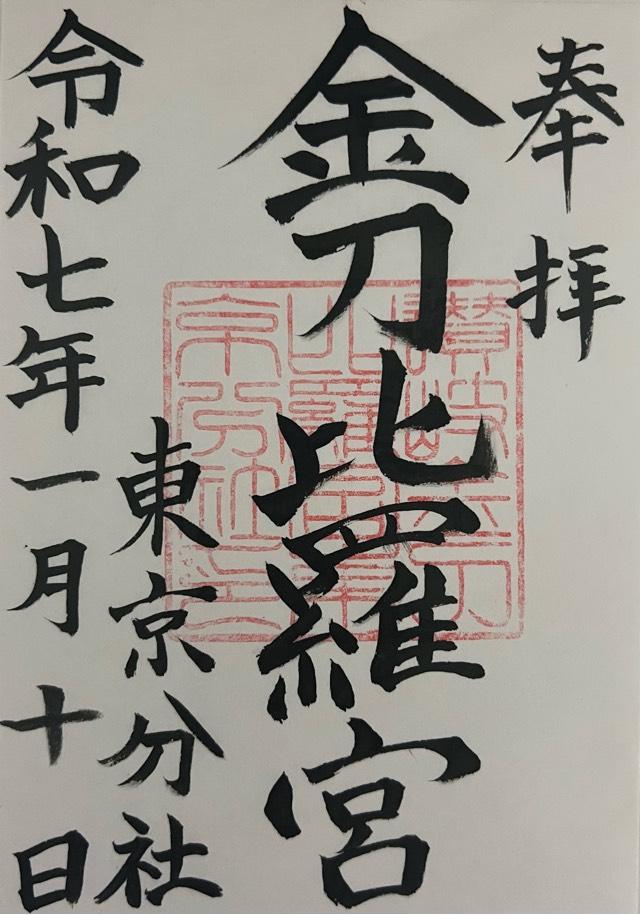 奉拝
金刀比羅宮
東京分社
令和七年一月十日